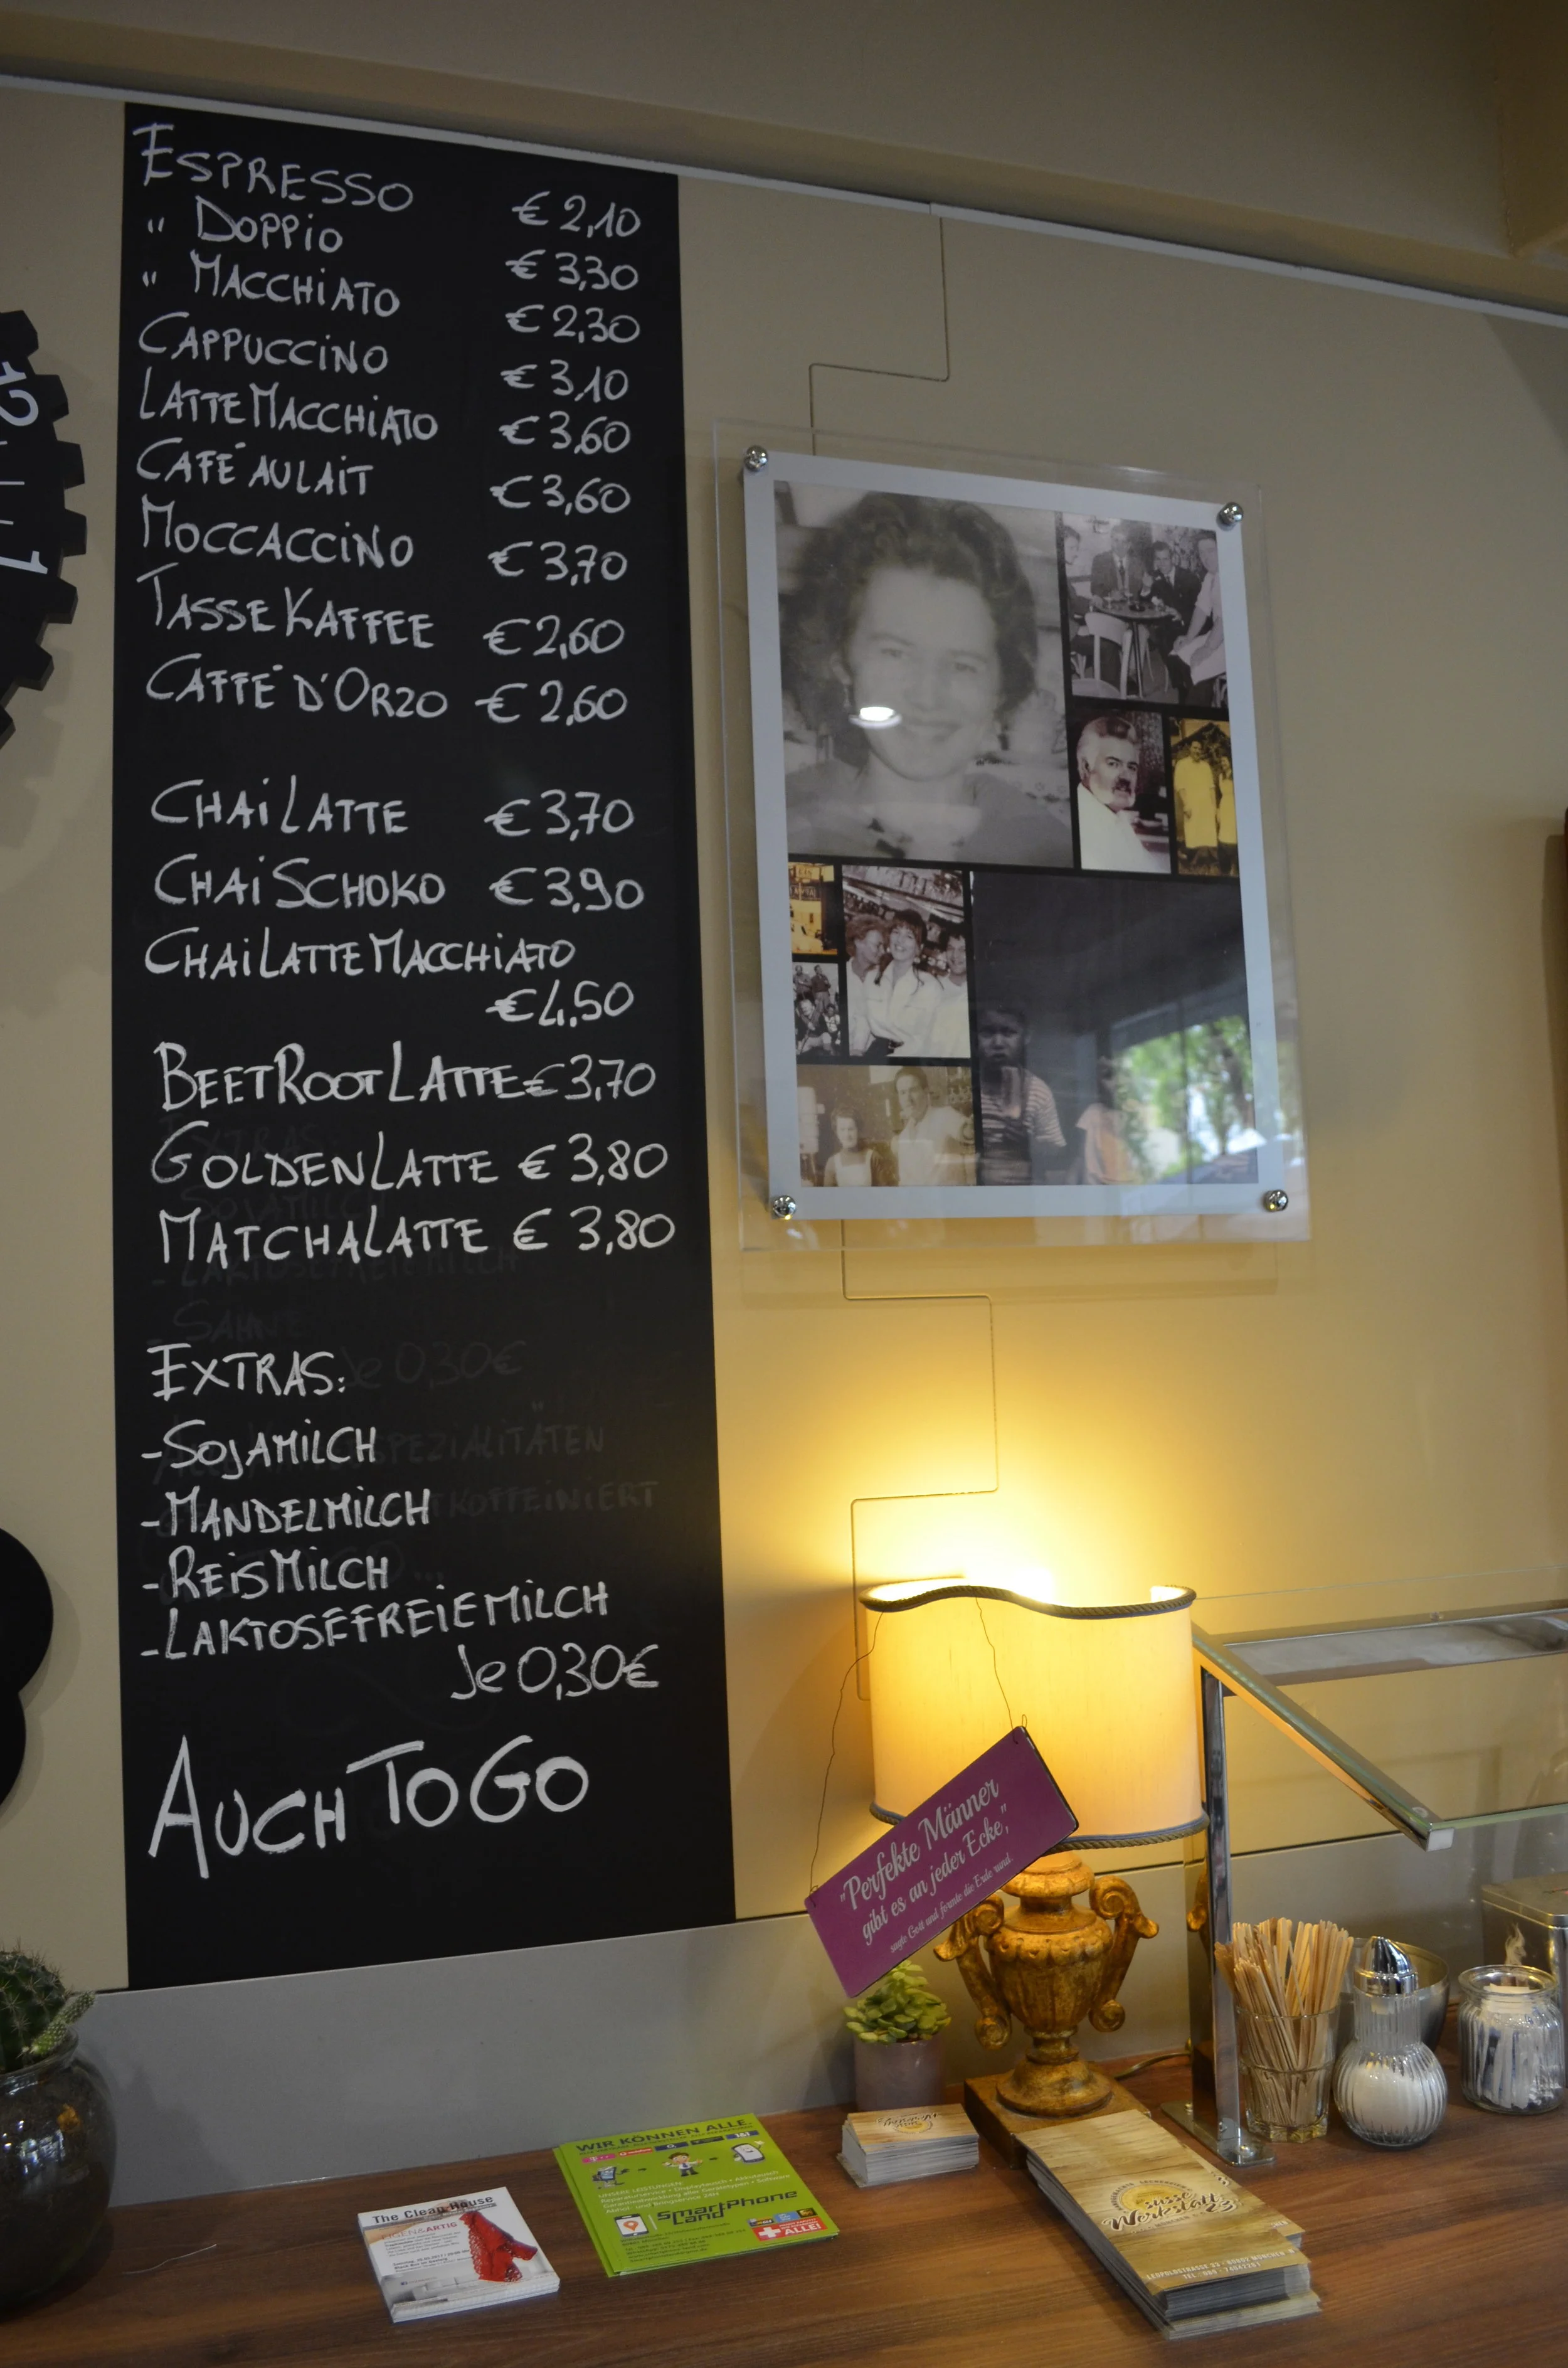 ESPRESSO € 2,10
" DOPPIO € 3,30
" MACCHIATO € 2,30
CAPPUCCINO € 3,10
LATTE MACCHIATO € 3,60
CAFÉ AU LAIT € 3,60
MOCCACCINO € 3,70
TASSE KAFFEE € 2,60
CAFFÉ D'ORZO € 2,60
CHAI LATTE € 3,70
CHAI SCHOKO € 3,90
CHAI LATTE MACCHIATO
€ 4,50
BEETROOT LATTE € 3,70
GOLDEN LATTE € 3,80
MATCHA LATTE € 3,80
EXTRAS:
- SOJAMILCH
- MANDELMILCH
- REISMILCH
- LAKTOSEFREIE MILCH
Je 0,30€
AUCH TO GO
12
1
"Perfekte Männer
gibt es an jeder Ecke,"
sagte Gott und formte die Erde rund.
The Clean House
WIR KÖNNEN ALLE.
UNSERE LEISTUNGEN
smartPhone
Land
ALLE!
süsse
Werkstatt
LEOPOLDSTRASSE